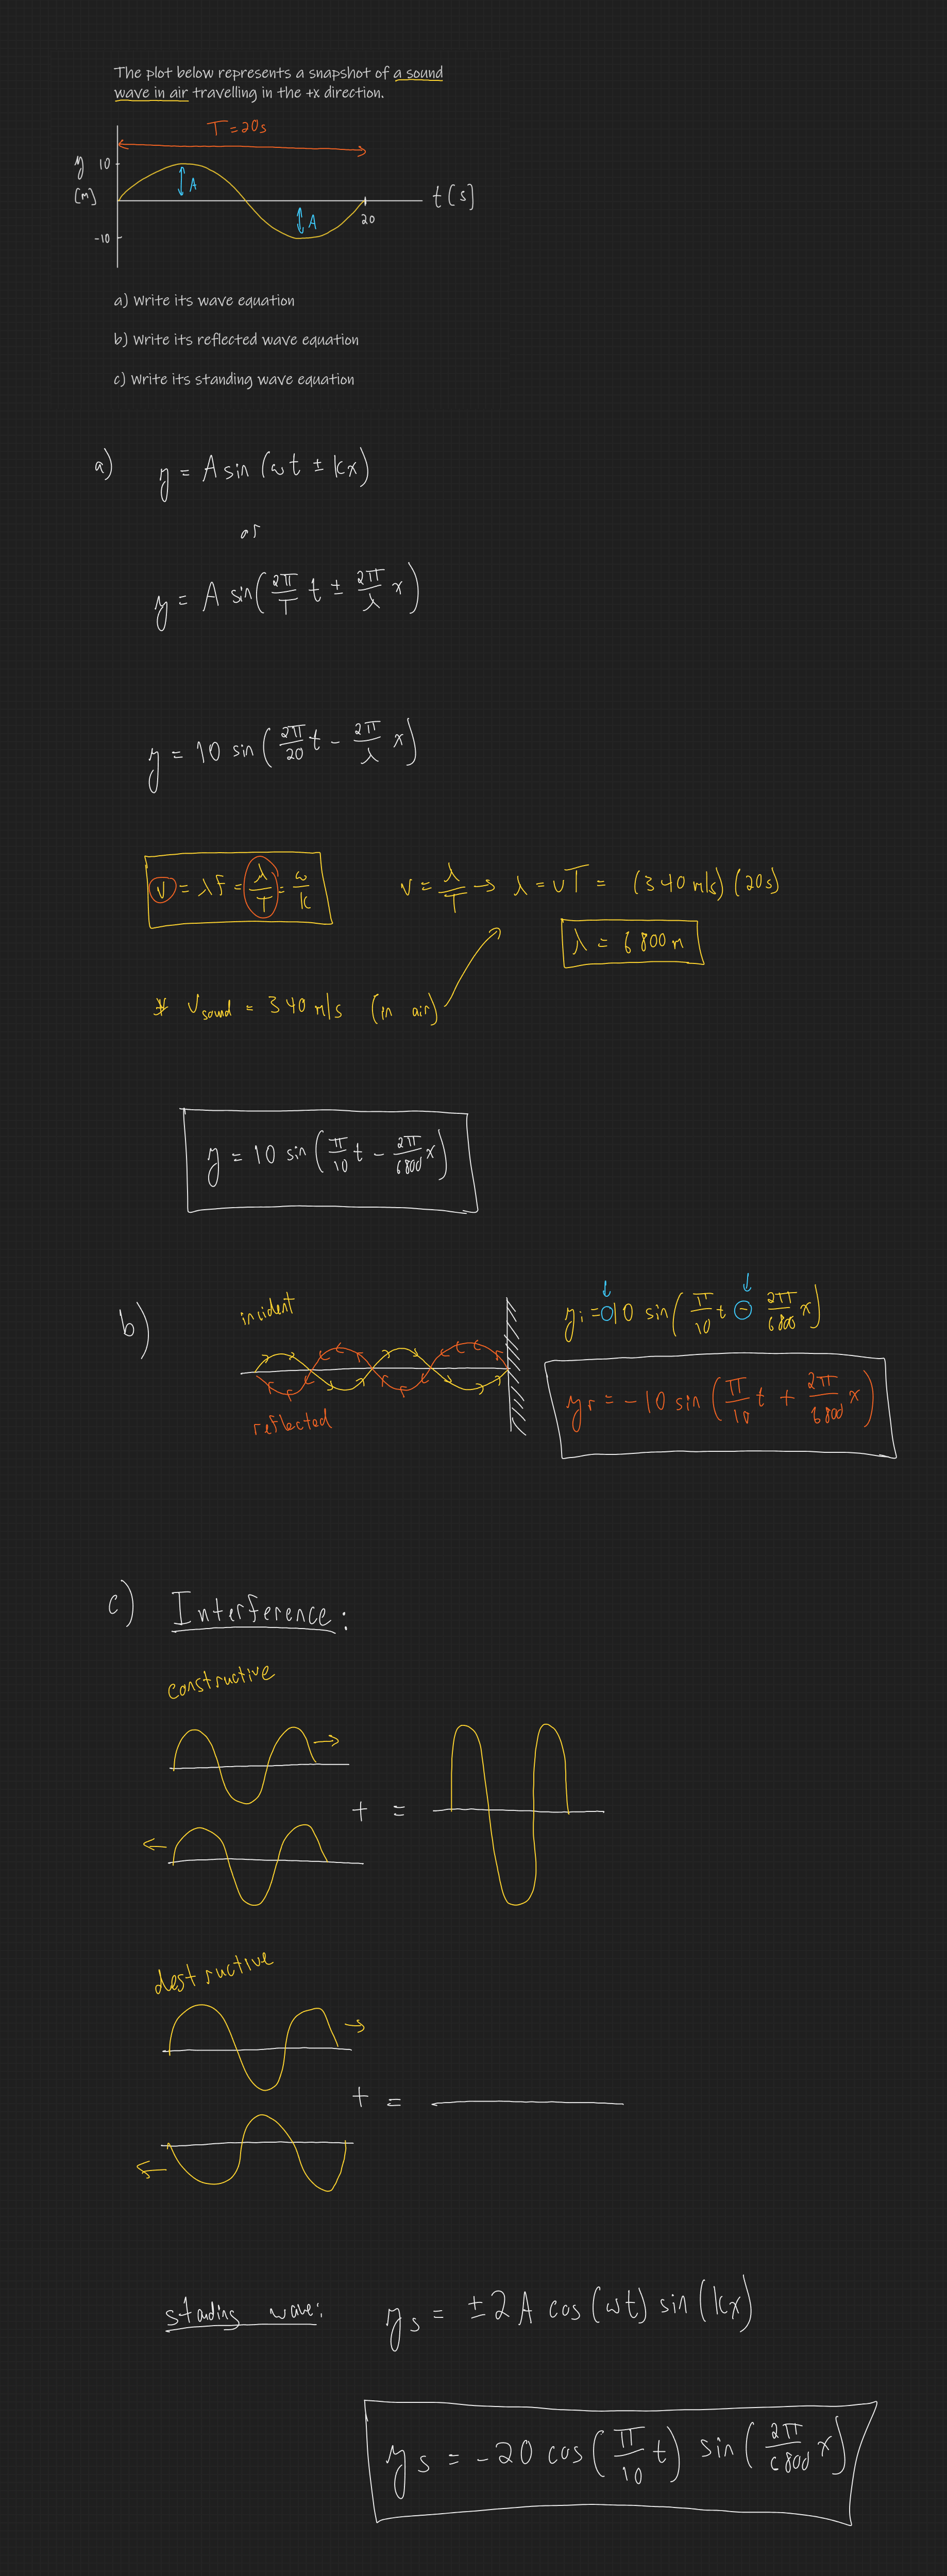 The plot below represents a snapshot of a sound
wave in air travelling in the +x direction.
T = 20s
y 10
(m)
A
t (s)
A
20
-10
a) Write its wave equation
b) Write its reflected wave equation
c) Write its standing wave equation
a) y = A sin (ωt ± kx)
or
y = A sin(2π/T t ± 2π/λ x)
y = 10 sin (2π/20 t - 2π/λ x)
v = λF = λ/T = ω/k
v = λ/T → λ = vT = (340 m/s) (20s)
λ = 6800 m
* v_sound = 340 m/s (in air)
y = 10 sin (π/10 t - 2π/6800 x)
b)
incident
reflected
yi = 10 sin(π/10 t - 2π/6800 x)
yr = -10 sin (π/10 t + 2π/6800 x)
c) Interference:
constructive
+ =
destructive
+ =
standing wave: ys = ±2A cos(ωt) sin(kx)
ys = -20 cos(π/10 t) sin(2π/6800 x)